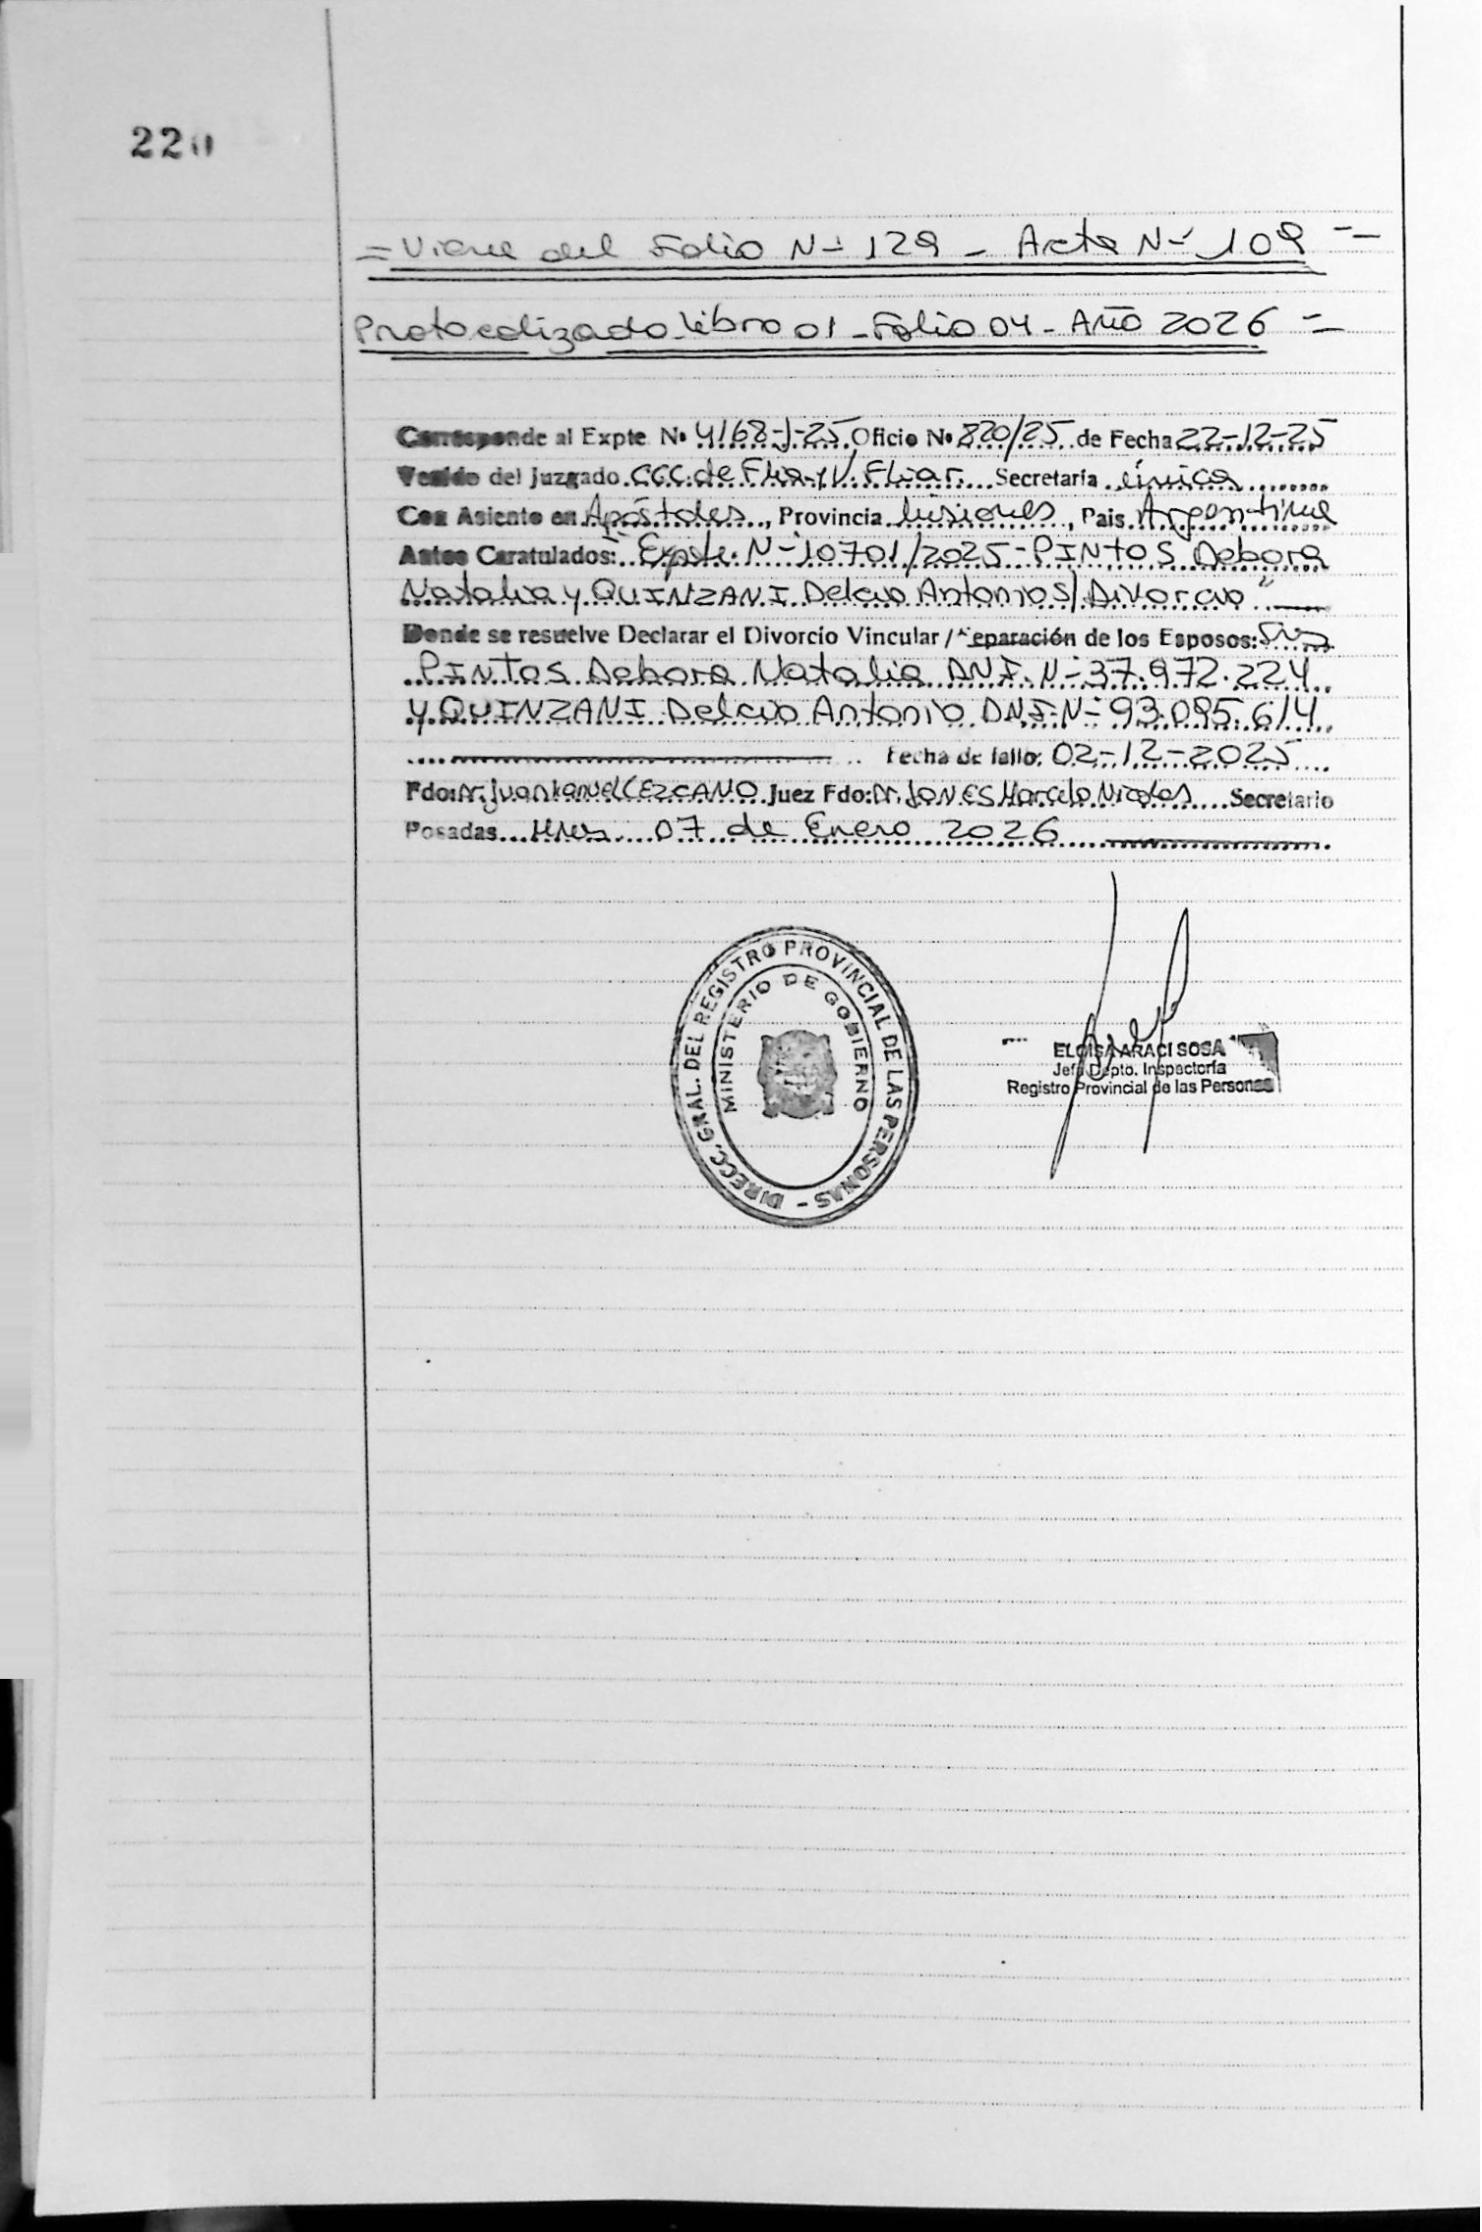 220
= Viene del Folio N- 129 - Acta N- 109 --
Protocolizado libro 01 - Folio 04 - Año 2026 --
Corresponde al Expte. Nº 4168-J-25 Oficio Nº 820/25 de Fecha 22-12-25
Venido del Juzgado CCC. de Flia. y V. Fliar. Secretaría única
Con Asiento en Apóstoles, Provincia Misiones, Pais Argentina
Autos Caratulados: "Expte. N- 10701/2025 - PINTOS Debora
Natalia y QUINZANI Delcio Antonio S/ Divorcio"
Donde se resuelve Declarar el Divorcio Vincular / Separación de los Esposos:
PINTOS Debora Natalia DNI. N- 37.972.224
y QUINZANI Delcio Antonio DNI. N- 93.095.614
Fecha de fallo: 02-12-2025
Fdo: Dr. Juan Manuel LEZCANO Juez Fdo: Dr. JONES Marcelo Nicolas Secretario
Posadas Mnes 07 de Enero 2026
DIRECC. GRAL. DEL REGISTRO PROVINCIAL DE LAS PERSONAS -
MINISTERIO DE GOBIERNO
ELOISA ARACI SOSA
Jefa Depto. Inspectoría
Registro Provincial de las Personas